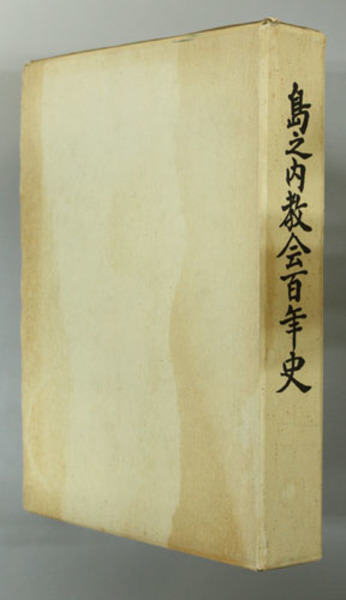 島之内教会百年史